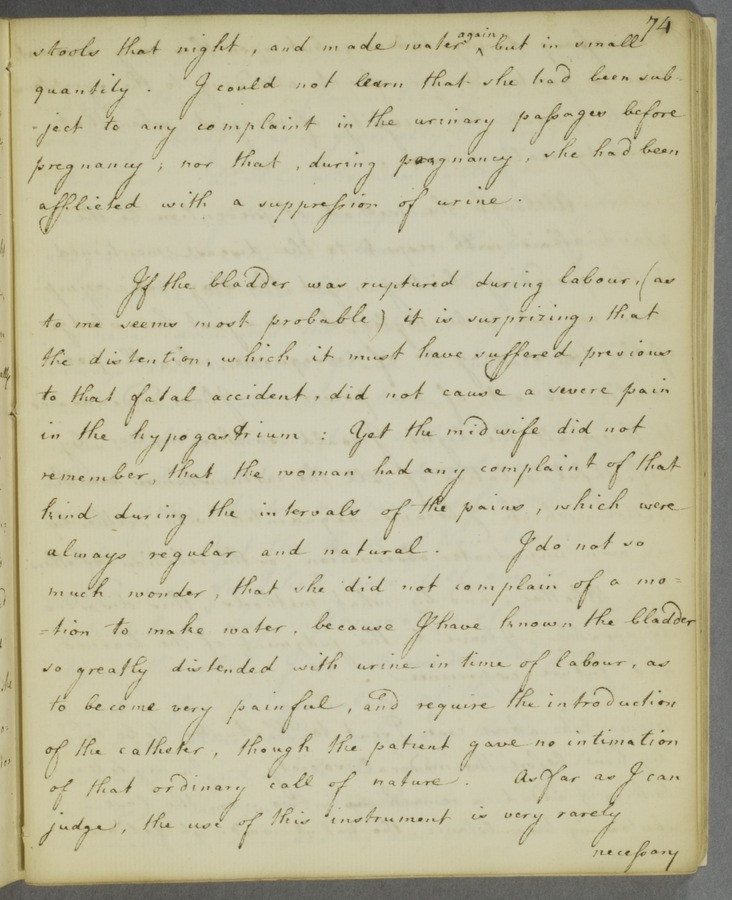 74
stools that night, and made water again, but in small
quantity. I could not learn that she had been sub-
-ject to any complaint in the urinary passages before
pregnancy; nor that, during pregnancy, she had been
afflicted with a suppression of urine.
If the bladder was ruptured during labour, (as
to me seems most probable) it is surprizing, that
the distention, which it must have suffered previous
to that fatal accident, did not cause a severe pain
in the hypogastrium: Yet the midwife did not
remember, that the woman had any complaint of that
kind during the intervals of the pains, which were
always regular and natural. I do not so
much wonder, that she did not complain of a mo=
=tion to make water, because I have known the bladder
so greatly distended with urine in time of labour, as
to become very painful, and require the introduction
of the catheter, though the patient gave no intimation
of that ordinary call of nature. As far as I can
judge, the use of this instrument is very rarely
necessary